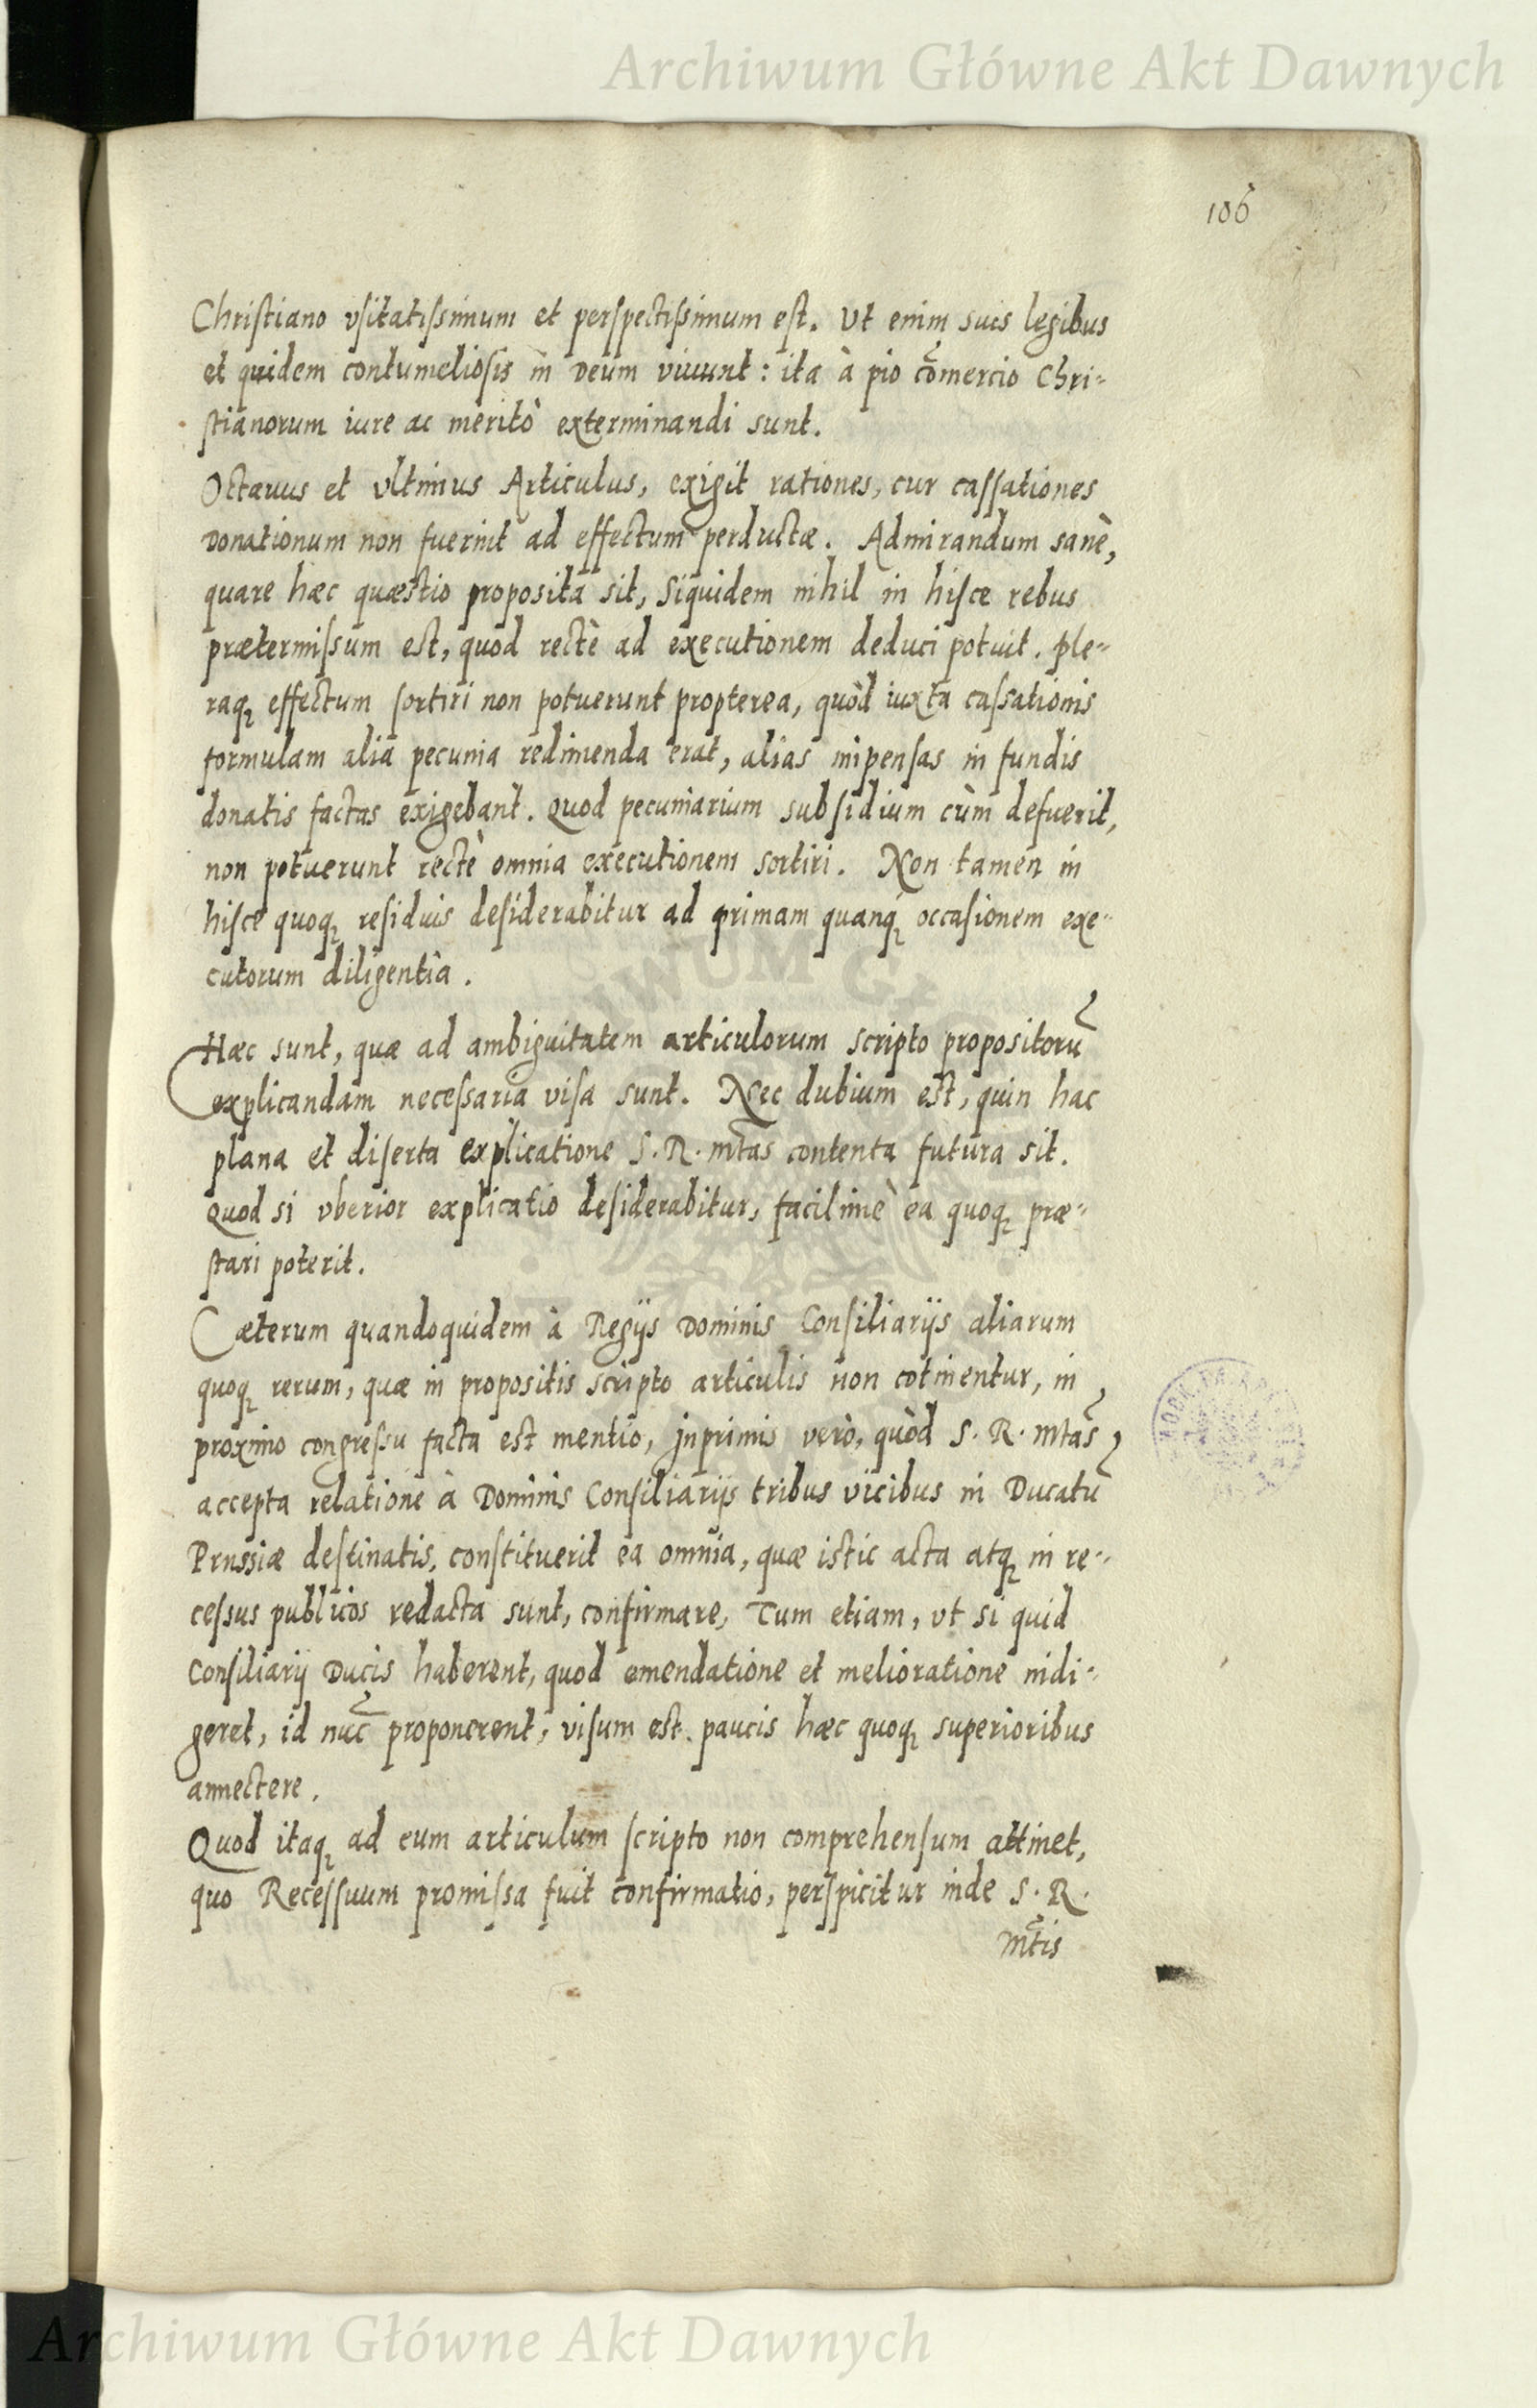 Archiwum Główne Akt Dawnych
106
Christiano vsitatissimum et perspectissimum est. Ut enim suis legibus
et quidem contumeliosis in Deum viuunt: ita à pio com̃ercio Chri-
stianorum iure ac meritò exterminandi sunt.
Octauus et vltimus Articulus, exigit rationes, cur cassationes
Donationum non fuerint ad effectum perductæ. Admirandum sanè,
quare hæc quæstio proposita sit, siquidem nihil in hisce rebus
prætermissum est, quod rectè ad executionem deduci potuit. Ple-
raqꝫ effectum sortiri non potuerunt propterea, quòd iuxta cassationis
formulam alia pecunia redimenda erat, alias impensas in fundis
donatis factas exigebant. Quod pecuniarium subsidium cùm defuerit,
non potuerunt rectè omnia executionem sortiri. Non tamen in
hisce quoqꝫ residuis desiderabitur ad primam quanqꝫ occasionem exe-
cutorum diligentia.
Hæc sunt, quæ ad ambiguitatem articulorum scripto propositorũ
explicandam necessaria visa sunt. Nec dubium est, quin hac
plana et diserta explicatione S. R. Mtas contenta futura sit.
Quod si vberior explicatio desiderabitur, facilimè ea quoqꝫ præ-
stari poterit.
Cæterum quandoquidem à Regijs Dominis Consiliarijs aliarum
quoqꝫ rerum, quæ in propositis scripto articulis non cõtinentur, in
proximo congressu facta est mentio, Inprimis verò, quòd S. R. Mtas
accepta relatione à Dominis Consiliarijs tribus vicibus in Ducatũ
Prussiæ destinatis, constituerit ea omnia, quæ istic acta atqꝫ in re-
cessus publicos redacta sunt, confirmare, Tum etiam, vt si quid
Consiliarij Ducis haberent, quod emendatione et melioratione indi-
geret, id nũc proponerent, visum est paucis hæc quoqꝫ superioribus
annectere.
Quod itaqꝫ ad eum articulum scripto non comprehensum attinet,
quo Recessuum promissa fuit confirmatio, perspicitur inde S. R.
Mtis
Archiwum Główne Akt Dawnych